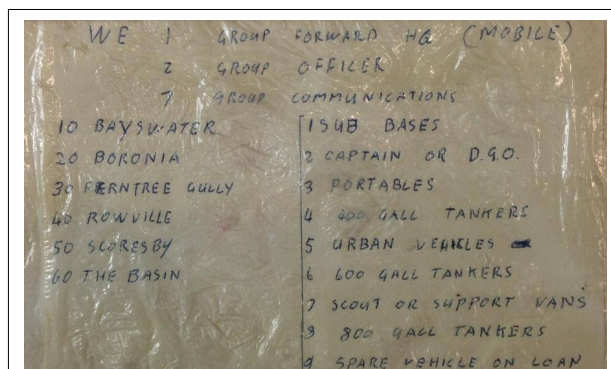 WE 1 GROUP FORWARD HQ (MOBILE)
2 GROUP OFFICER
7 GROUP COMMUNICATIONS
10 BAYSWATER
20 BORONIA
30 FERNTREE GULLY
40 ROWVILLE
50 SCORESBY
60 THE BASIN
1 SUB BASES
2 CAPTAIN OR D.G.O.
3 PORTABLES
4 400 GALL TANKERS
5 URBAN VEHICLES
6 600 GALL TANKERS
7 SCOUT OR SUPPORT VANS
8 800 GALL TANKERS
9 SPARE VEHICLE ON LOAN